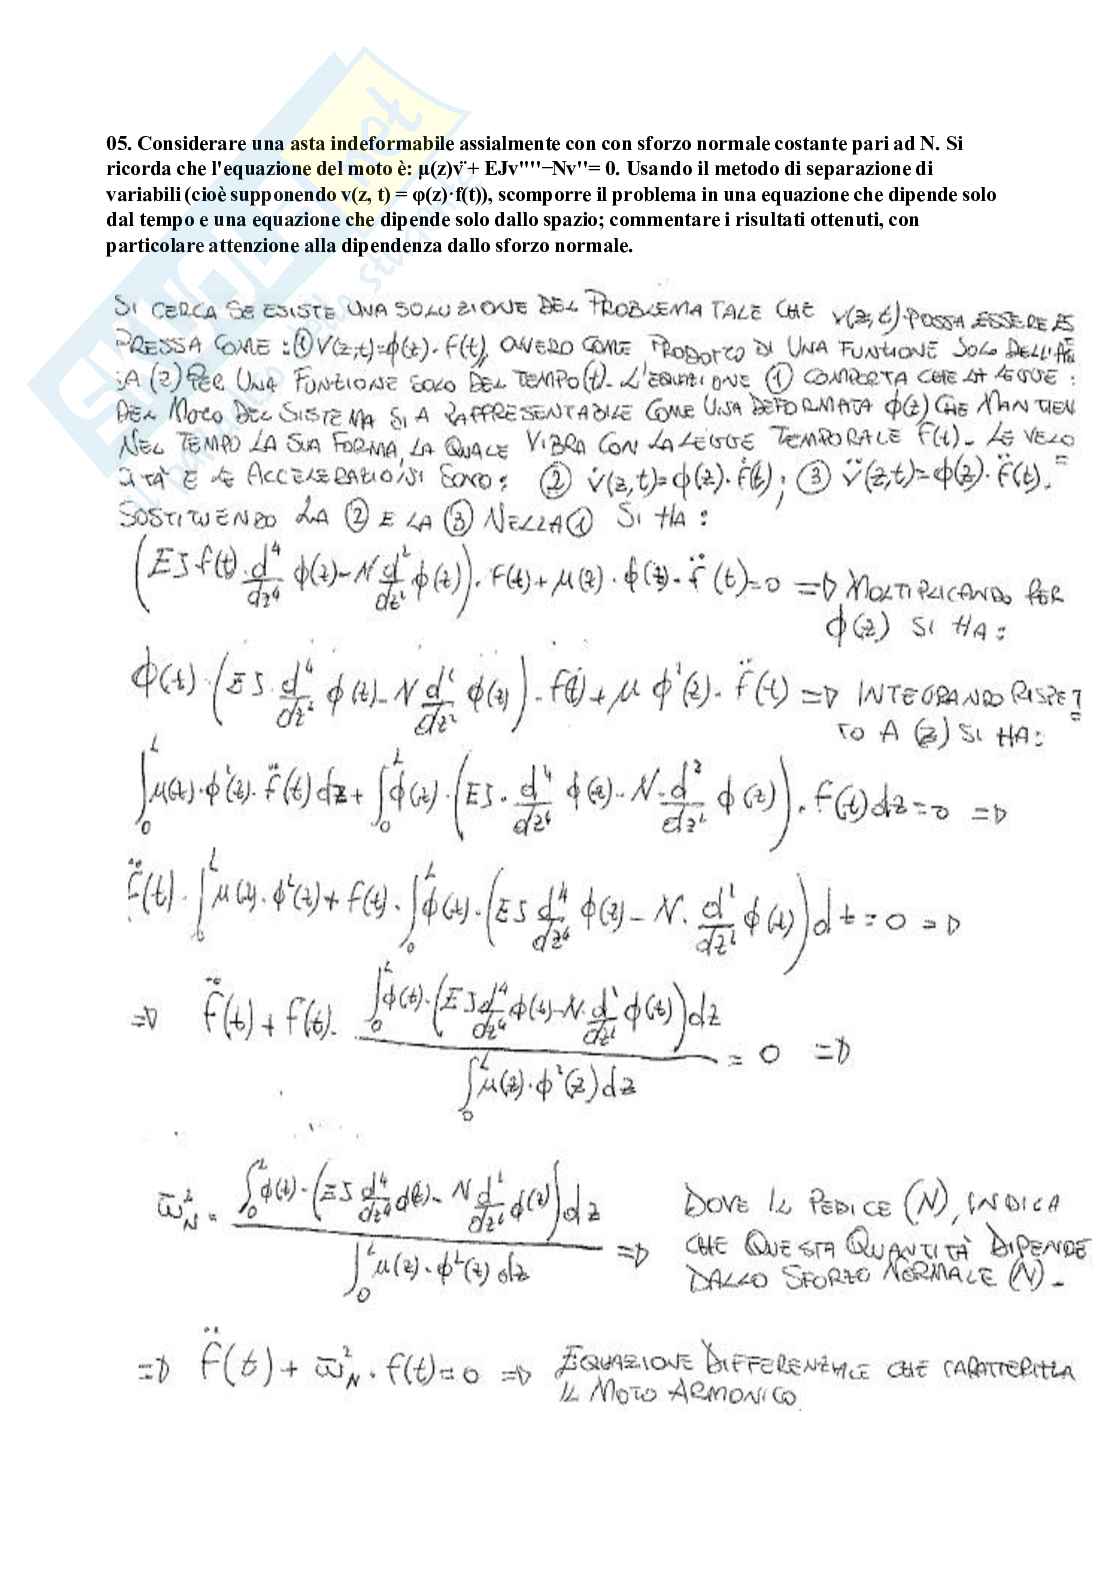 05. Considerare una asta indeformabile assialmente con con sforzo normale costante pari ad N. Si
ricorda che l'equazione del moto è: μ(z)v̈ + EJv""−Nv''= 0. Usando il metodo di separazione di
variabili (cioè supponendo v(z, t) = φ(z)·f(t)), scomporre il problema in una equazione che dipende solo
dal tempo e una equazione che dipende solo dallo spazio; commentare i risultati ottenuti, con
particolare attenzione alla dipendenza dallo sforzo normale.
SI CERCA SE ESISTE UNA SOLUZIONE DEL PROBLEMA TALE CHE v(z,t) POSSA ESSERE ES
PRESSA COME: ① V(z,t)=ϕ(z)·f(t), OVVERO COME PRODOTTO DI UNA FUNZIONE SOLO DELL'A
A (z) PER UNA FUNZIONE SOLO DEL TEMPO (t). L'EQUAZIONE ① COMPORTA CHE LA LEGGE
DEL MOTO DEL SISTEMA SIA RAFFRESENTABILE COME UNA DEFORMATA ϕ(z) CHE MANTIEN
NEL TEMPO LA SUA FORMA, LA QUALE VIBRA CON LA LEGGE TEMPORALE f(t). LE VELO
CITÀ E LE ACCELERAZIONI SONO: ② v̇(z,t)=ϕ(z)·ḟ(t); ③ v̈(z,t)=ϕ(z)·f̈(t).
SOSTITUENDO LA ② E LA ③ NELLA ① SI HA:
(EJ f(t)·d⁴/dz⁴ ϕ(z)−N d²/dz² ϕ(z))·f(t)+μ(z)·ϕ(z)·f̈(t)=0 ⇒ MOLTIPLICANDO PER
ϕ(z) SI HA:
ϕ(z)·(EJ·d⁴/dz⁴ ϕ(z)−N d²/dz² ϕ(z))·f(t)+μ ϕ²(z)·f̈(t) ⇒ INTEGRANDO RISPET
TO A (z) SI HA:
∫₀ᴸ μ(z)·ϕ²(z)·f̈(t)dz+∫₀ᴸ ϕ(z)·(EJ·d⁴/dz⁴ ϕ(z)−N·d²/dz² ϕ(z))·f(t)dz=0 ⇒
f̈(t)·∫₀ᴸ μ(z)·ϕ²(z)+f(t)·∫₀ᴸ ϕ(z)·(EJ d⁴/dz⁴ ϕ(z)−N·d²/dz² ϕ(z))dz=0 ⇒
⇒ f̈(t)+f(t)·∫₀ᴸ ϕ(z)·(EJ d⁴/dz⁴ ϕ(z)−N·d²/dz² ϕ(z))dz / ∫₀ᴸ μ(z)·ϕ²(z)dz = 0 ⇒
ω̄²_N = ∫₀ᴸ ϕ(z)·(EJ d⁴/dz⁴ ϕ(z)−N d²/dz² ϕ(z))dz / ∫₀ᴸ μ(z)·ϕ²(z)dz ⇒ DOVE IL PEDICE (N), INDICA
CHE QUESTA QUANTITÀ DIPENDE
DALLO SFORZO NORMALE (N).
⇒ f̈(t)+ω̄²_N·f(t)=0 ⇒ EQUAZIONE DIFFERENZIALE CHE CARATTERIZZA
IL MOTO ARMONICO